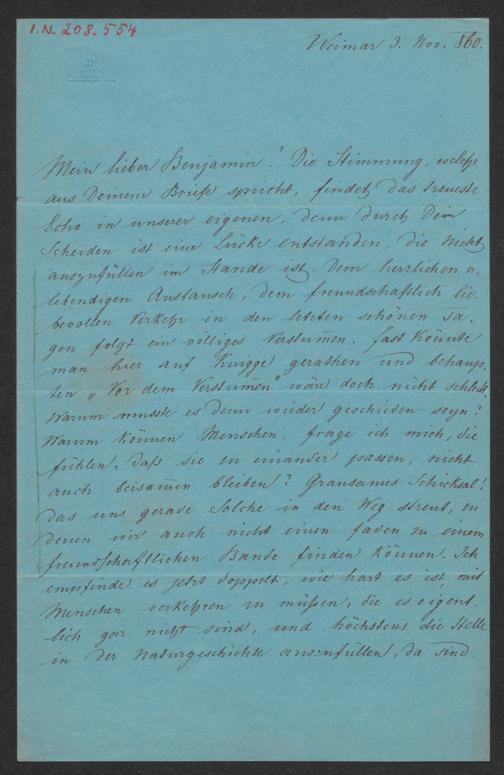 I.N. 208.554
Weimar 3. Nov. 860.
Mein lieber Benjamin! Die Stimmung, welche
aus Deinem Briefe spricht, findet das treueste
Echo in unserer eigenen, denn durch Dein
Scheiden ist eine Lücke entstanden, die nichts
auszufüllen im Stande ist. Dem herrlichen u.
lebendigen Austausch, dem freundschaftlich lie-
bevollen Verkehr in den letzten schönen Ta-
gen folgt ein völliges Verstum̅en. Fast könnte
man hier auf Knigge gerathen und behaup-
ten „Vor dem Verstum̅en" wäre doch nicht schlecht.
Warum musste es denn wieder geschieden seyn?
Warum können Menschen, frage ich mich, die
fühlen, daß sie zu einander passen, nicht
auch beisam̅en bleiben? Grausames Schicksal!
das uns gerade Solche in den Weg streut, zu
denen wir auch nicht einen Faden zu einem
freundschaftlichen Bande finden können. Ich
empfinde es jetzt doppelt, wie hart es ist, mit
Menschen verkehren zu müßen, die es eigent-
lich gar nicht sind, und höchstens die Stelle
in der Naturgeschichte auszufüllen, da sind.